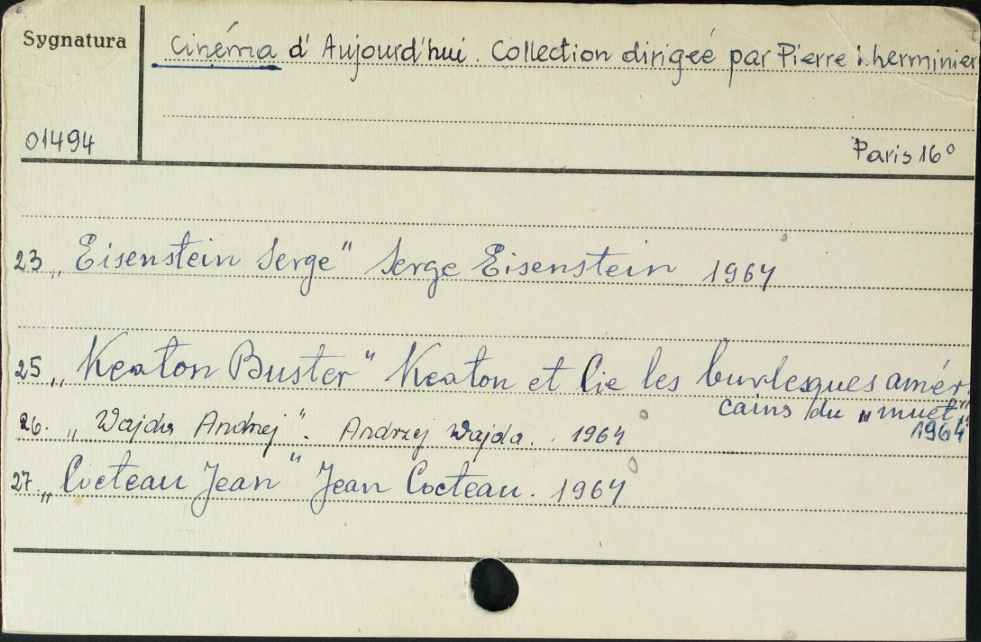 Sygnatura
Cinéma d'Aujourd'hui. Collection dirigeé par Pierre Lherminier
01494
Paris 16°
23 „Eisenstein Serge" Serge Eisenstein 1964
25 „Keaton Buster" Keaton et Cie les burlesques améri
cains du „muet"
1964
26. „Wajda Andrzej". Andrzej Wajda. 1964
27 „Cocteau Jean" Jean Cocteau. 1964